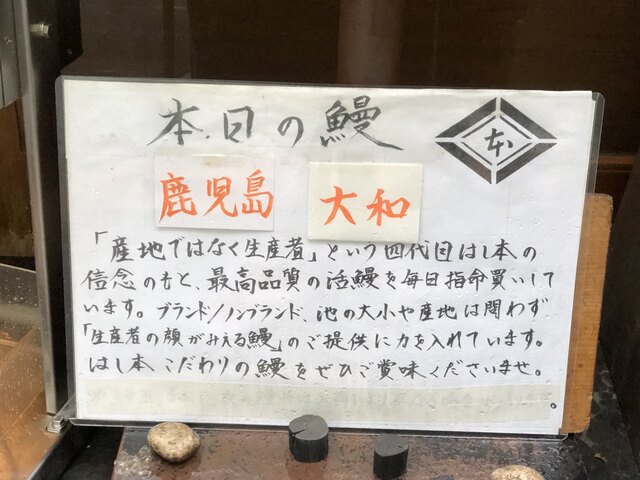 本日の鰻
本
鹿児島
大和
「産地ではなく生産者」という四代目はし本の
信念のもと、最高品質の活鰻を毎日指命買いして
います。ブランド/ノンブランド、池の大小や産地は問わず
「生産者の顔がみえる鰻」のご提供に力を入れています。
はし本こだわりの鰻をぜひご賞味くださいませ。